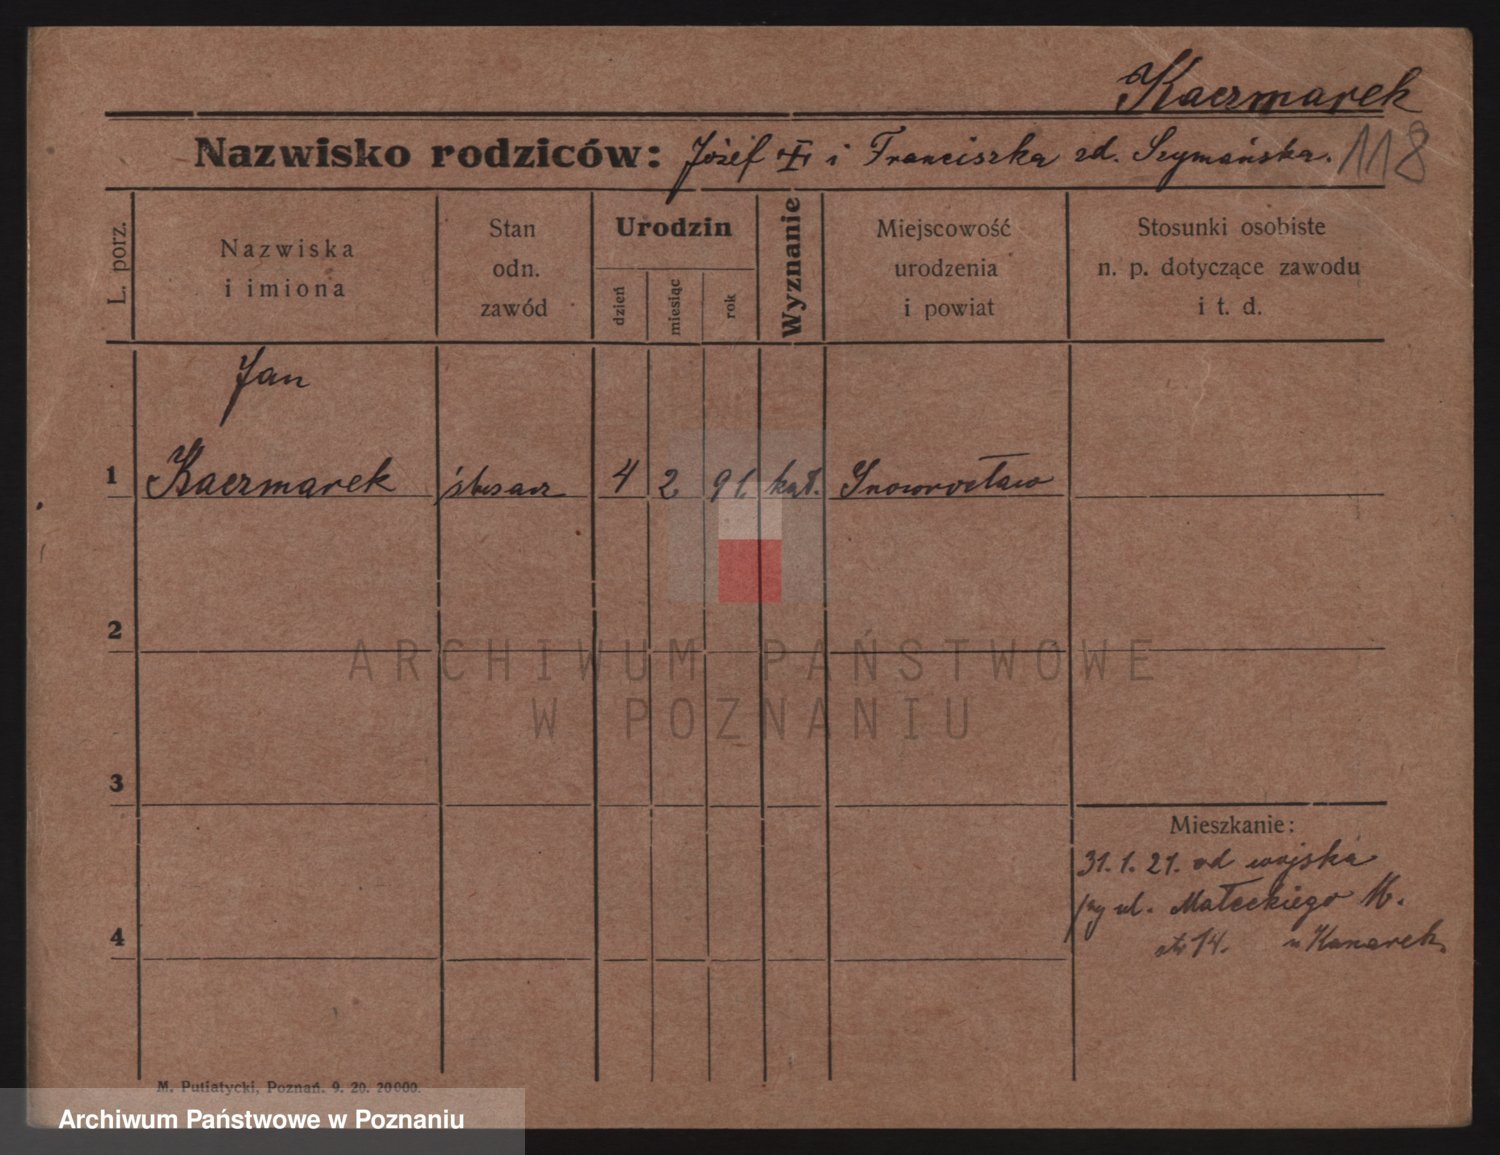 Kaczmarek
Nazwisko rodziców: Józef i Franciszka zd. Szymańska.
118
L. porz.
Nazwiska
i imiona
Stan
odn.
zawód
Urodzin
dzień
miesiąc
rok
Wyznanie
Miejscowość
urodzenia
i powiat
Stosunki osobiste
n. p. dotyczące zawodu
i t. d.
Jan
1 Kaczmarek 4 2 91 kat. Inowrocław
2
ARCHIWUM PAŃSTWOWE
W POZNANIU
3
Mieszkanie:
31. 1. 21. od wojska
ul. Małeckiego
4
14. u Kanarek
M. Putiatycki, Poznań. 9. 20. 20000.
Archiwum Państwowe w Poznaniu